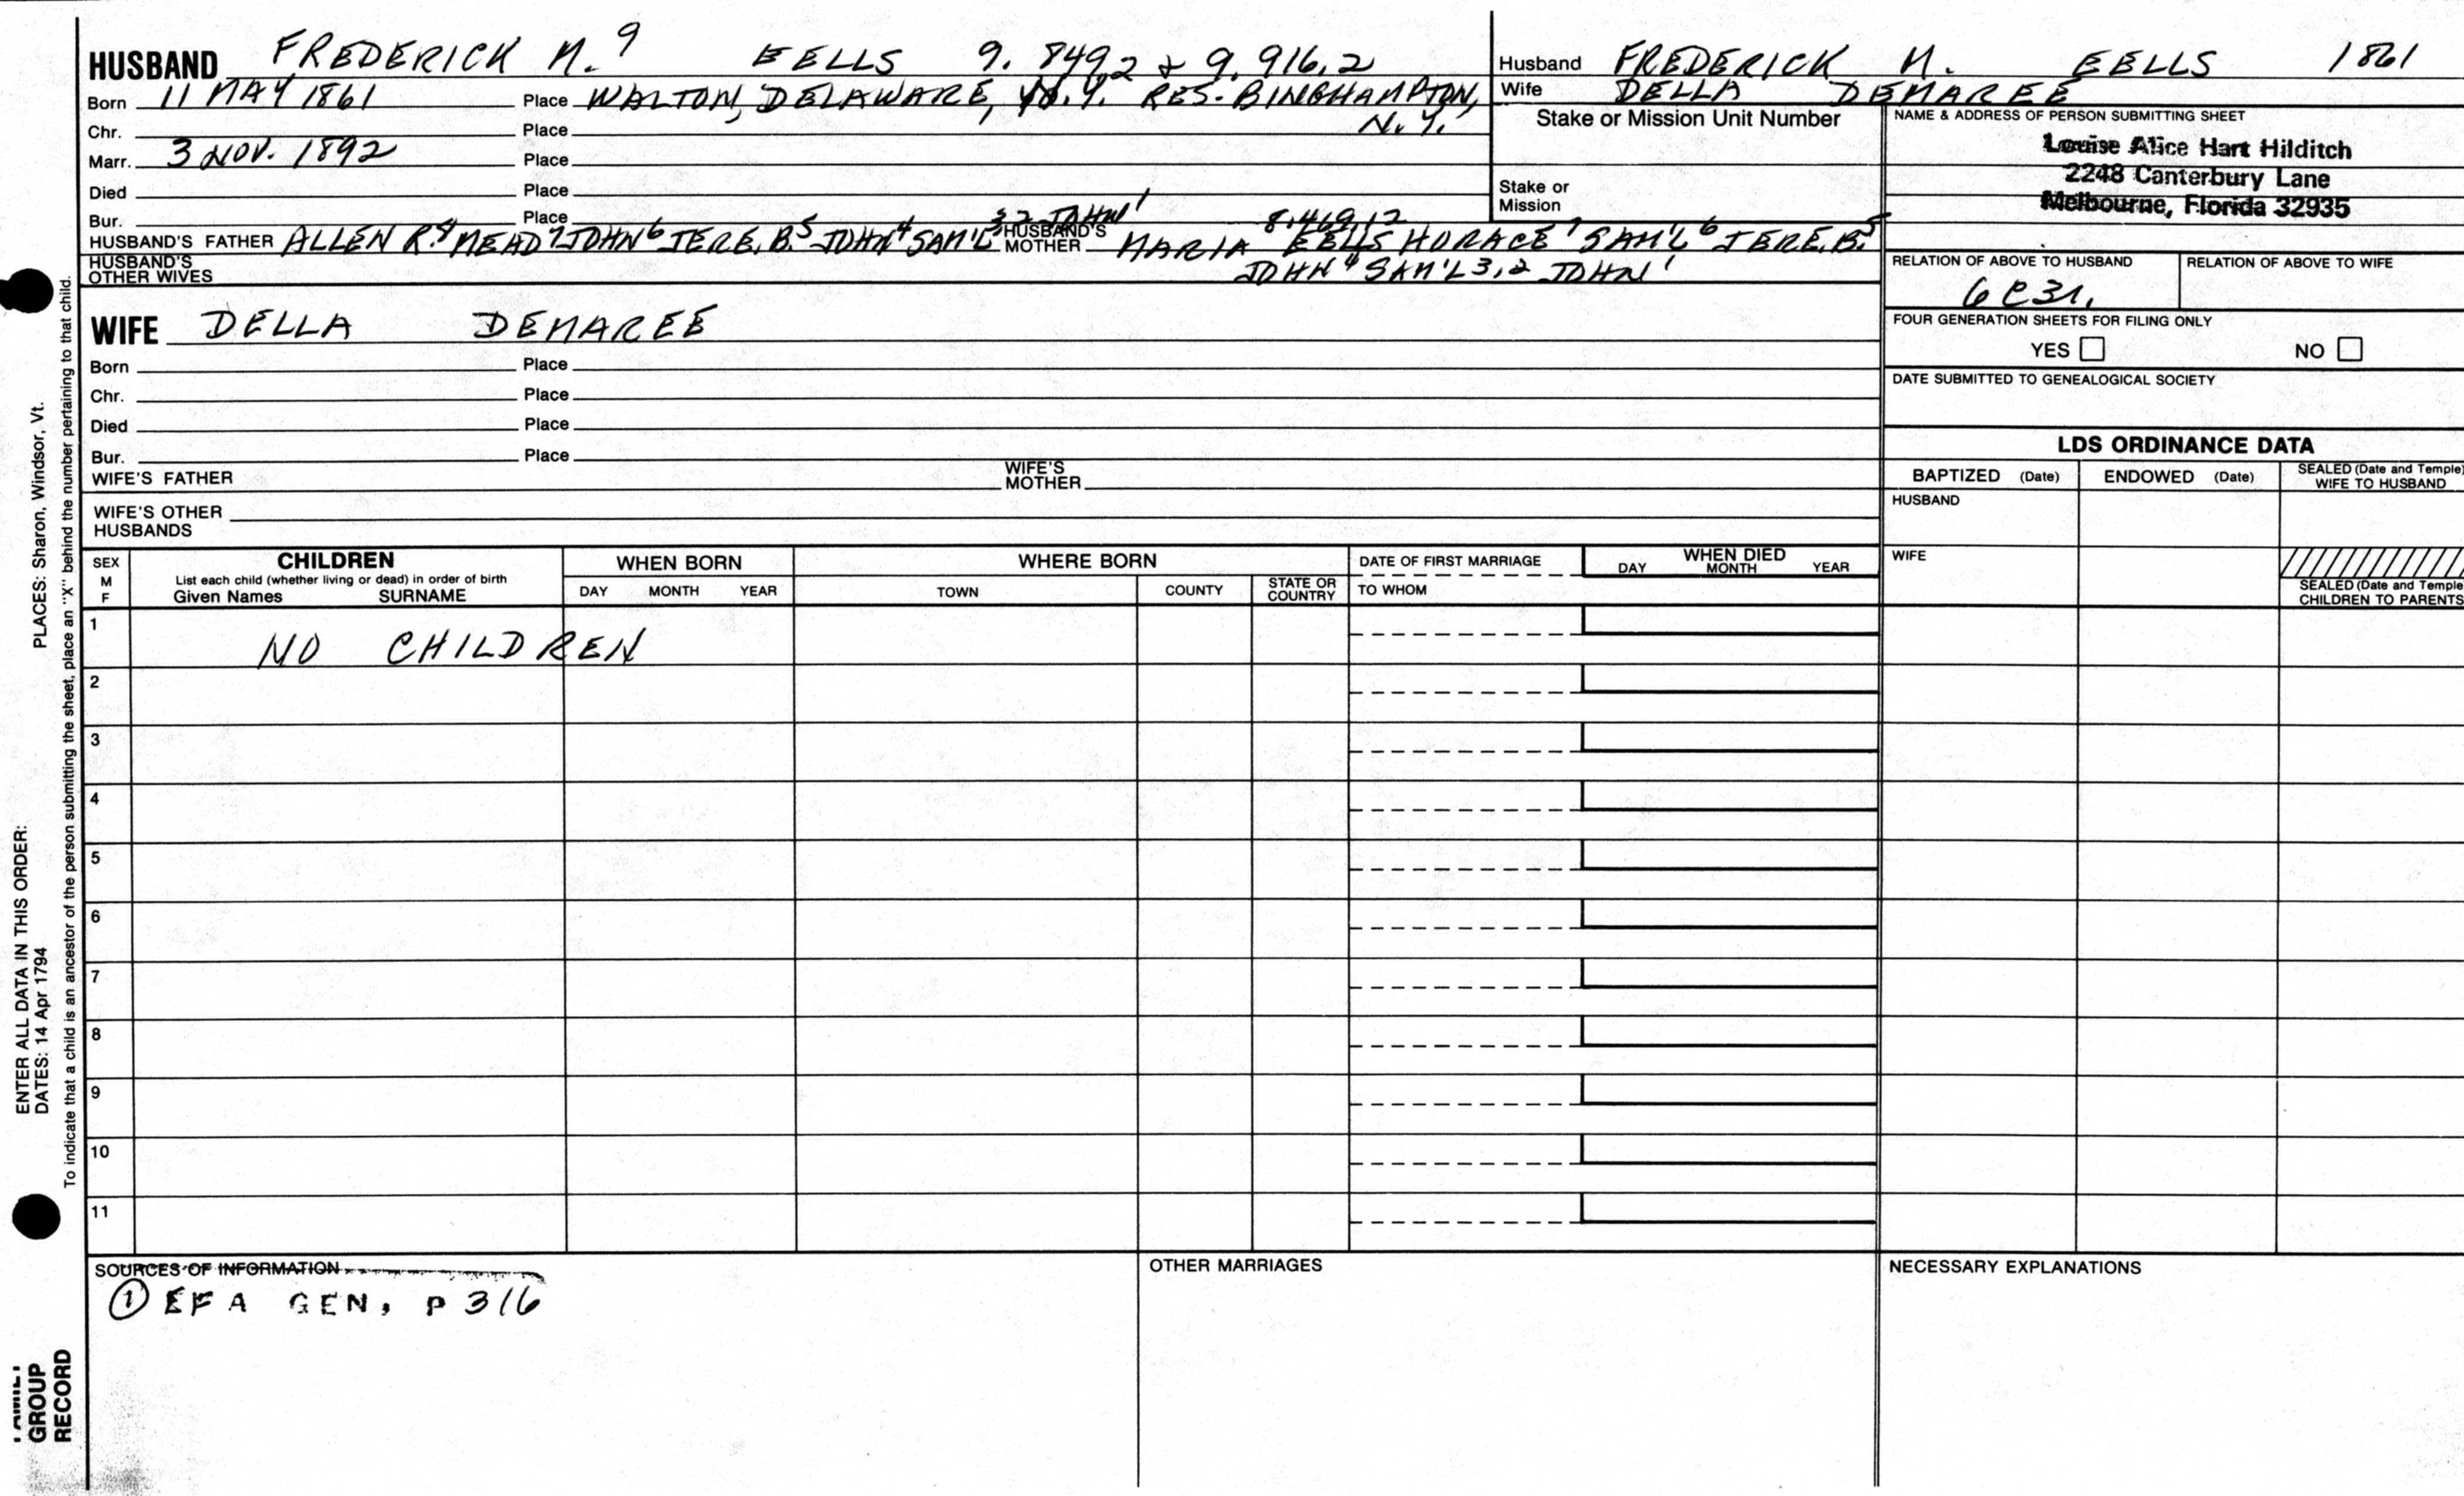 HUSBAND FREDERICK M.⁹ EELLS 9.849,2 & 9.916,2
Born 11 MAY 1861 Place WALTON, DELAWARE, N.Y. RES- BINGHAMPTON,
Chr. Place N.Y.
Marr. 3 NOV. 1892 Place
Died Place
Bur. Place
HUSBAND'S FATHER ALLEN R.⁸ MEAD⁷ JOHN⁶ JERE.B.⁵ JOHN⁴ SAM'L³,² JOHN¹ HUSBAND'S MOTHER MARIA EELLS 8.469,12 HORACE⁷ SAM'L⁶ JERE.B.⁵
JOHN⁴ SAM'L3,2 JOHN¹
HUSBAND'S OTHER WIVES
WIFE DELLA DEMAREE
Born Place
Chr. Place
Died Place
Bur. Place
WIFE'S FATHER WIFE'S MOTHER
WIFE'S OTHER
HUSBANDS
Husband FREDERICK M. EELLS 1861
Wife DELLA DEMAREE
Stake or Mission Unit Number
Stake or
Mission
NAME & ADDRESS OF PERSON SUBMITTING SHEET
Louise Alice Hart Hilditch
2248 Canterbury Lane
Melbourne, Florida 32935
RELATION OF ABOVE TO HUSBAND RELATION OF ABOVE TO WIFE
6C3R.
FOUR GENERATION SHEETS FOR FILING ONLY
YES NO
DATE SUBMITTED TO GENEALOGICAL SOCIETY
LDS ORDINANCE DATA
BAPTIZED (Date) ENDOWED (Date) SEALED (Date and Temple) WIFE TO HUSBAND
HUSBAND
WIFE
SEALED (Date and Temple
CHILDREN TO PARENTS
SEX M F
CHILDREN
List each child (whether living or dead) in order of birth
Given Names SURNAME
WHEN BORN
DAY MONTH YEAR
WHERE BORN
TOWN COUNTY STATE OR COUNTRY
DATE OF FIRST MARRIAGE
TO WHOM
WHEN DIED
DAY MONTH YEAR
1 NO CHILDREN
2
3
4
5
6
7
8
9
10
11
SOURCES OF INFORMATION
① EFA GEN, P 316
OTHER MARRIAGES
NECESSARY EXPLANATIONS
PLACES: Sharon, Windsor, Vt.
ENTER ALL DATA IN THIS ORDER:
DATES: 14 Apr 1794
To indicate that a child is an ancestor of the person submitting the sheet, place an "X" behind the number pertaining to that child.
FAMILY
GROUP
RECORD